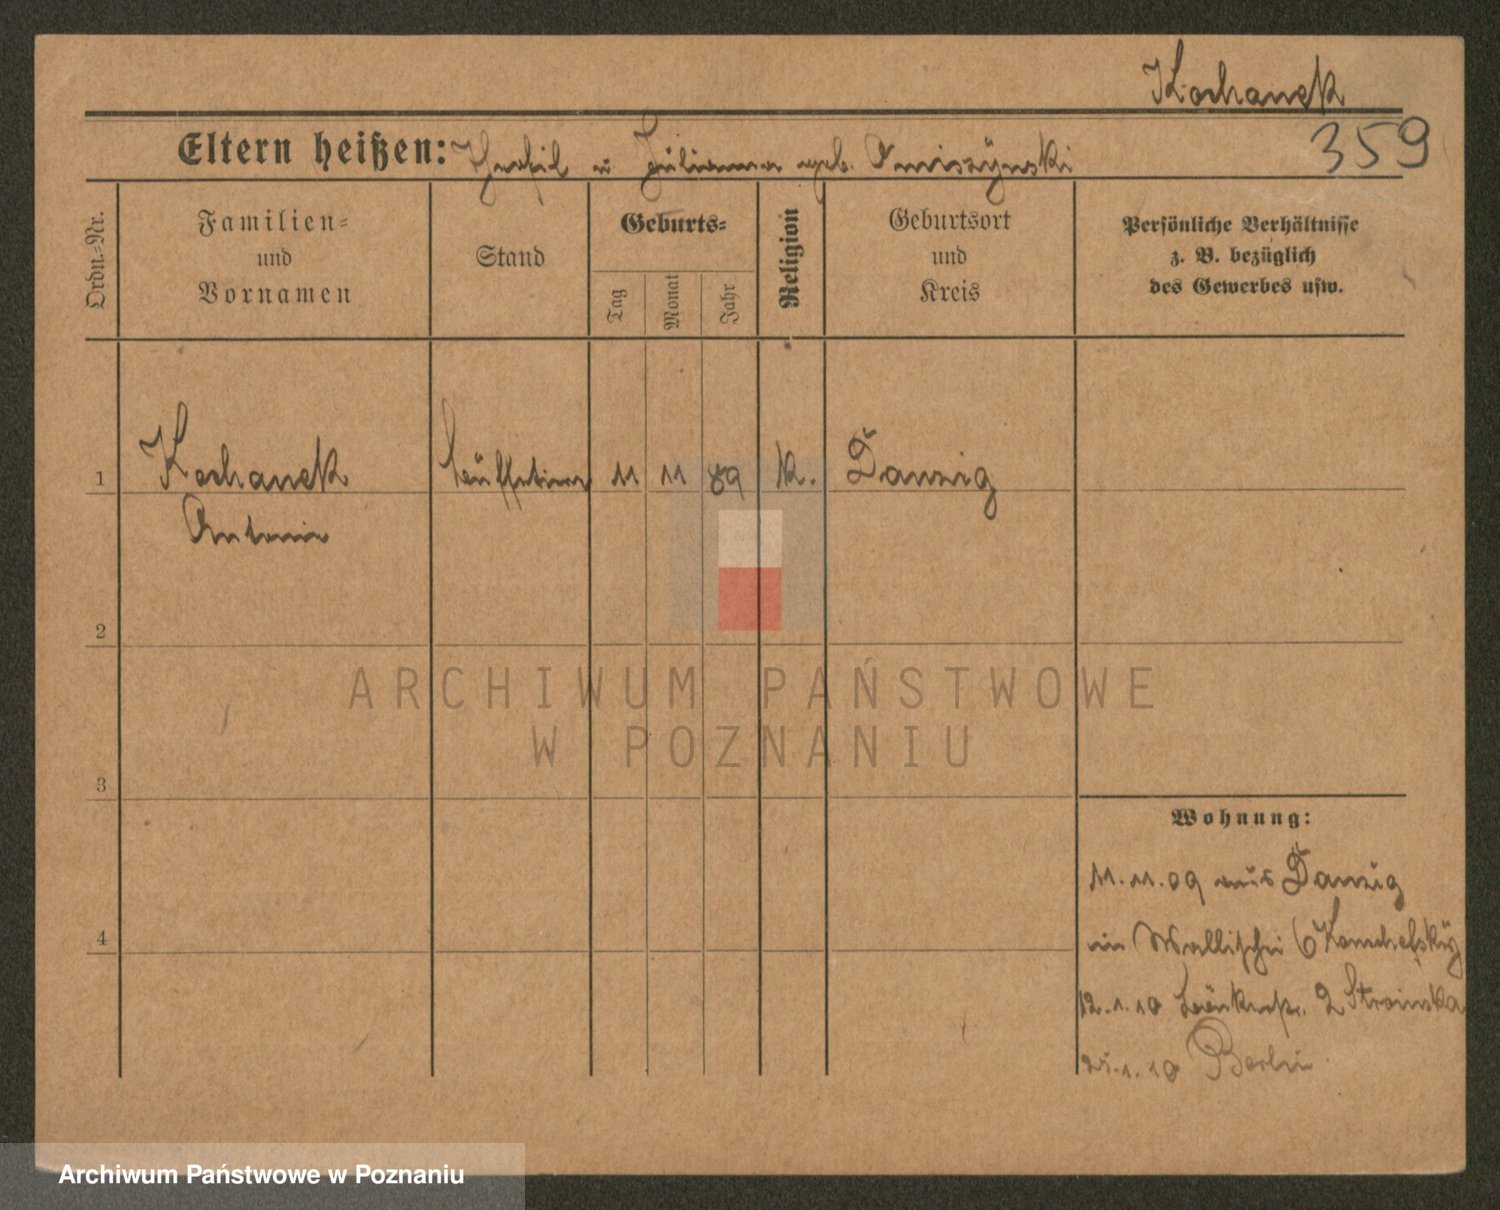 Kochanek
359
Eltern heißen: Theofil u Julianna geb.
Ordn.-Nr.
Familien-
und
Vornamen
Stand
Geburts-
Tag
Monat
Jahr
Religion
Geburtsort
und
Kreis
Persönliche Verhältnisse
z. B. bezüglich
des Gewerbes usw.
1 Kochanek 11 11 89 k. Danzig
Antonie
2
3
4
ARCHIWUM PAŃSTWOWE
W POZNANIU
Wohnung:
11.11.09 aus Danzig
in Wallischei 6
12.1.10 2 Stroinska
25.1.10 Berlin
Archiwum Państwowe w Poznaniu